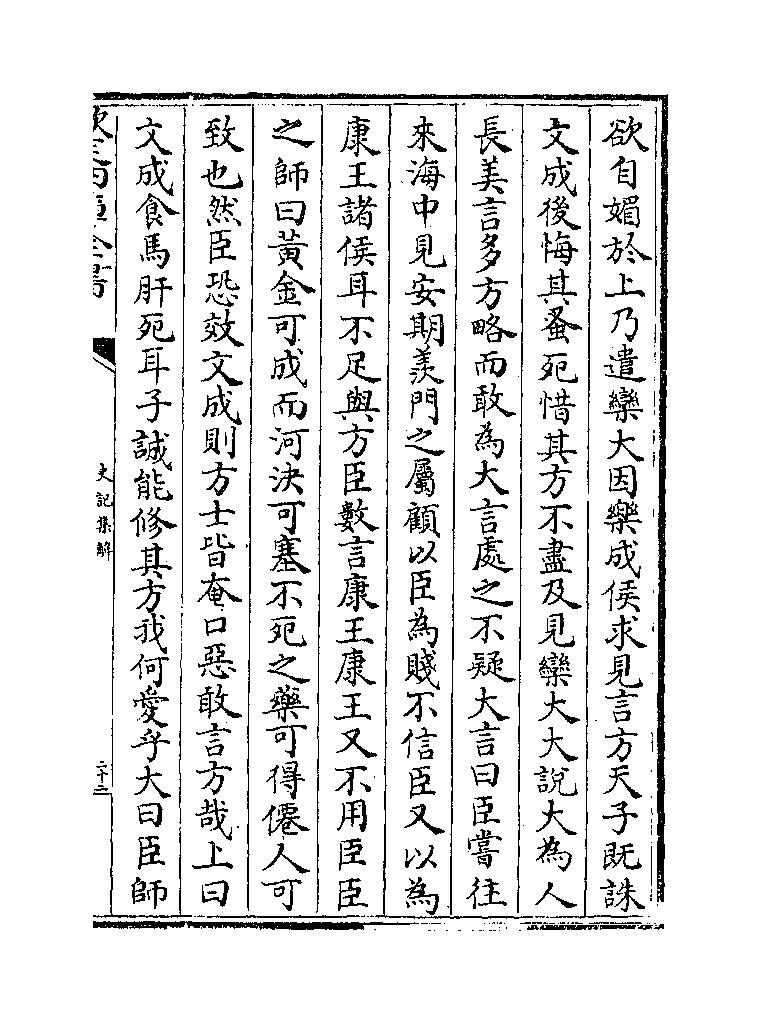 欲自媚於上乃遣欒大因樂成侯求見言方天子既誅
文成後悔其蚤死惜其方不盡及見欒大大說大為人
長美言多方略而敢為大言處之不疑大言曰臣嘗往
來海中見安期羨門之屬顧以臣為賤不信臣又以為
康王諸侯耳不足與方臣數言康王康王又不用臣臣
之師曰黃金可成而河決可塞不死之藥可得僊人可
致也然臣恐效文成則方士皆奄口惡敢言方哉上曰
文成食馬肝死耳子誠能修其方我何愛乎大曰臣師
欽定四庫全書
史記集解
二十三